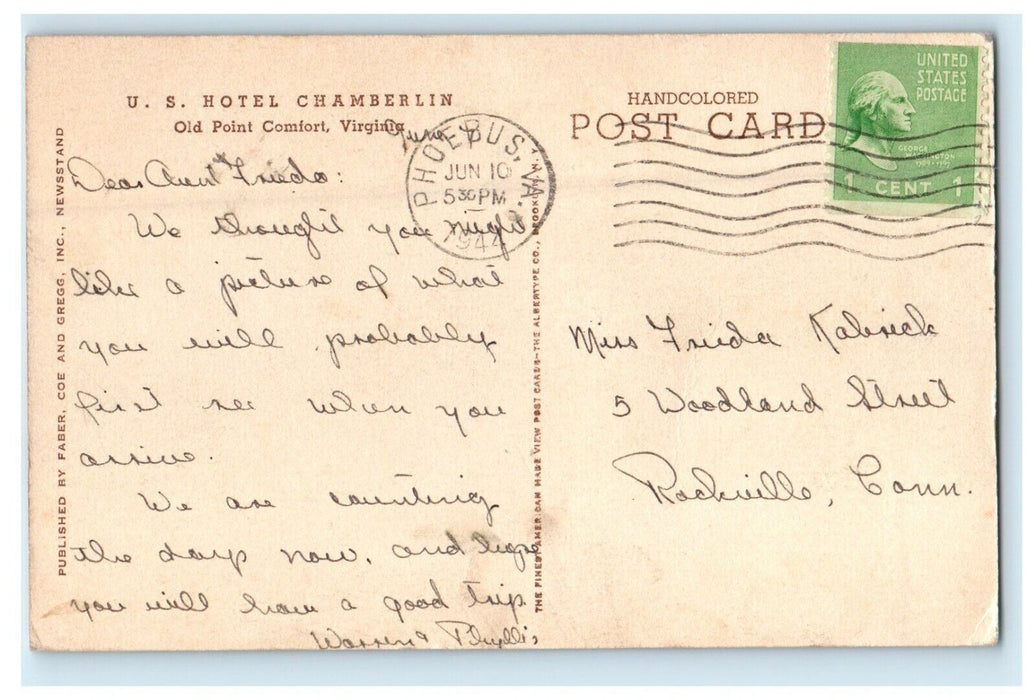 U. S. HOTEL CHAMBERLIN
Old Point Comfort, Virginia
Dear Aunt Frieda:
We thought you might
like a picture of what
you will probably
first see when you
arrive.
We are counting
the days now, and hope
you will have a good trip
Warren & Phyllis
PUBLISHED BY FABER, COE AND GREGG, INC., NEWSSTAND
PHOEBUS, VA.
JUN 10
5 30 PM
1944
THE FINEST AMERICAN MADE VIEW POST CARDS—THE ALBERTYPE CO., BROOKLYN, N.
HANDCOLORED
POST CARD
UNITED
STATES
POSTAGE
GEORGE
WASHINGTON
1 CENT 1
Miss Frieda Kabrick
5 Woodland Street
Rockville, Conn.